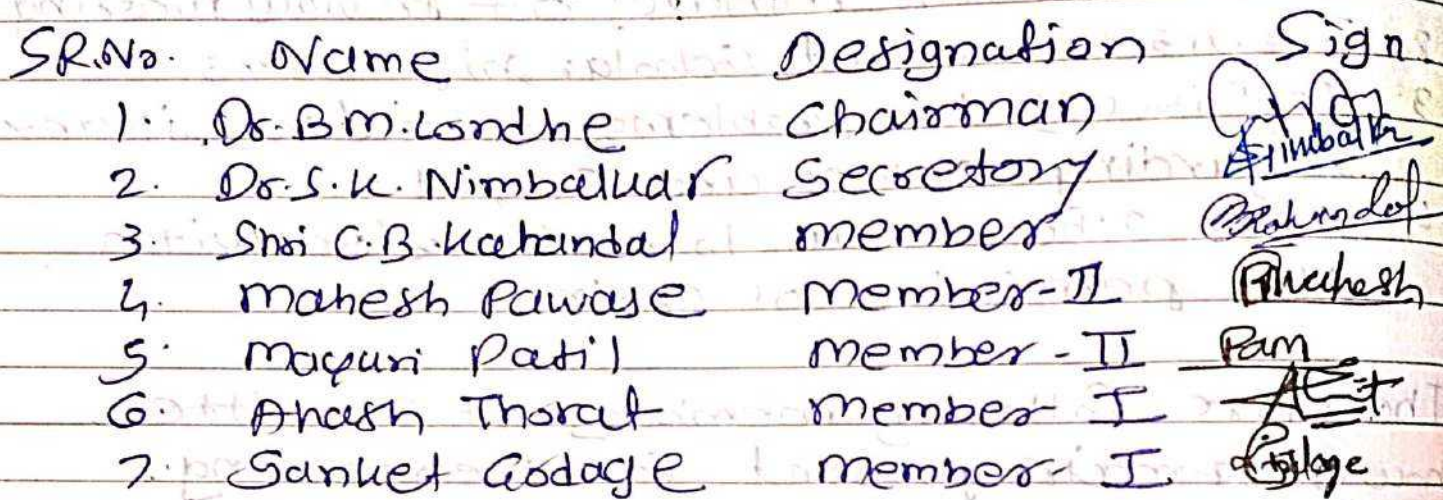 SR.No. Name Designation Sign
1. Dr. B.M. Londhe Chairman
2. Dr. S.K. Nimbalkar Secretory
3. Shri C.B. Kahandal member
4. Mahesh Pawase Member-II
5. Mayuri Patil member-II Pam
6. Akash Thorat member-I
7. Sanket Godage member-I